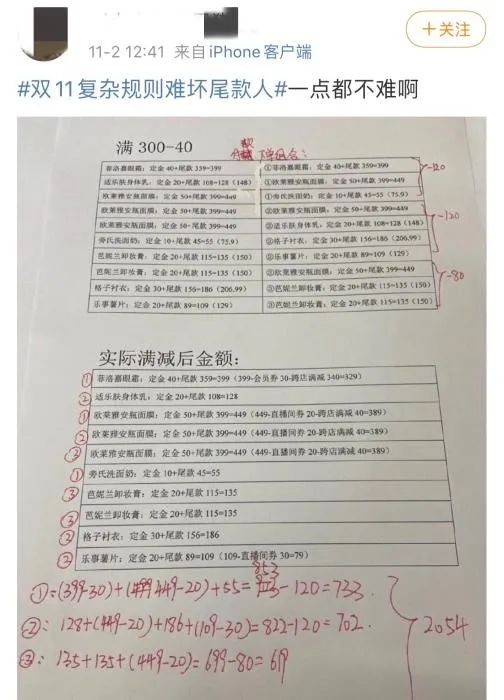 11-2 12:41 来自iPhone客户端
+关注
#双11复杂规则难坏尾款人#一点都不难啊
满 300-40
下单组合：
菲洛嘉眼霜：定金 40+尾款 359=399 ①菲洛嘉眼霜：定金 40+尾款 359=399
适乐肤身体乳：定金 20+尾款 108=128（148） ①欧莱雅安瓶面膜：定金 50+尾款 399=449
欧莱雅安瓶面膜：定金 50+尾款 399=449 ①旁氏洗面奶：定金 10+尾款 45=55（75.9）
-120
欧莱雅安瓶面膜：定金 50+尾款 399=449 ②欧莱雅安瓶面膜：定金 50+尾款 399=449
欧莱雅安瓶面膜：定金 50+尾款 399=449 ②适乐肤身体乳：定金 20+尾款 108=128（148）
旁氏洗面奶：定金 10+尾款 45=55（75.9） ②格子衬衣：定金 30+尾款 156=186（206.99）
芭妮兰卸妆膏：定金 20+尾款 115=135（150） ②乐事薯片：定金 20+尾款 89=109（129）
-120
芭妮兰卸妆膏：定金 20+尾款 115=135（150） ③欧莱雅安瓶面膜：定金 50+尾款 399=449
格子衬衣：定金 30+尾款 156=186（206.99） ③芭妮兰卸妆膏：定金 20+尾款 115=135（150）
乐事薯片：定金 20+尾款 89=109（129） ③芭妮兰卸妆膏：定金 20+尾款 115=135（150）
-80
实际满减后金额：
① 菲洛嘉眼霜：定金 40+尾款 359=399（399-会员券 30-跨店满减 340=329）
② 适乐肤身体乳：定金 20+尾款 108=128
① 欧莱雅安瓶面膜：定金 50+尾款 399=449（449-直播间券 20-跨店满减 40=389）
② 欧莱雅安瓶面膜：定金 50+尾款 399=449（449-直播间券 20-跨店满减 40=389）
② 欧莱雅安瓶面膜：定金 50+尾款 399=449（449-直播间券 20-跨店满减 40=389）
① 旁氏洗面奶：定金 10+尾款 45=55
③ 芭妮兰卸妆膏：定金 20+尾款 115=135
③ 芭妮兰卸妆膏：定金 20+尾款 115=135
② 格子衬衣：定金 30+尾款 156=186
② 乐事薯片：定金 20+尾款 89=109（109-直播间券 30=79）
①=(399-30)+(449-20)+55=853-120=733
②：128+(449-20)+186+(109-30)=822-120=702
③：135+135+(449-20)=699-80=619
2054